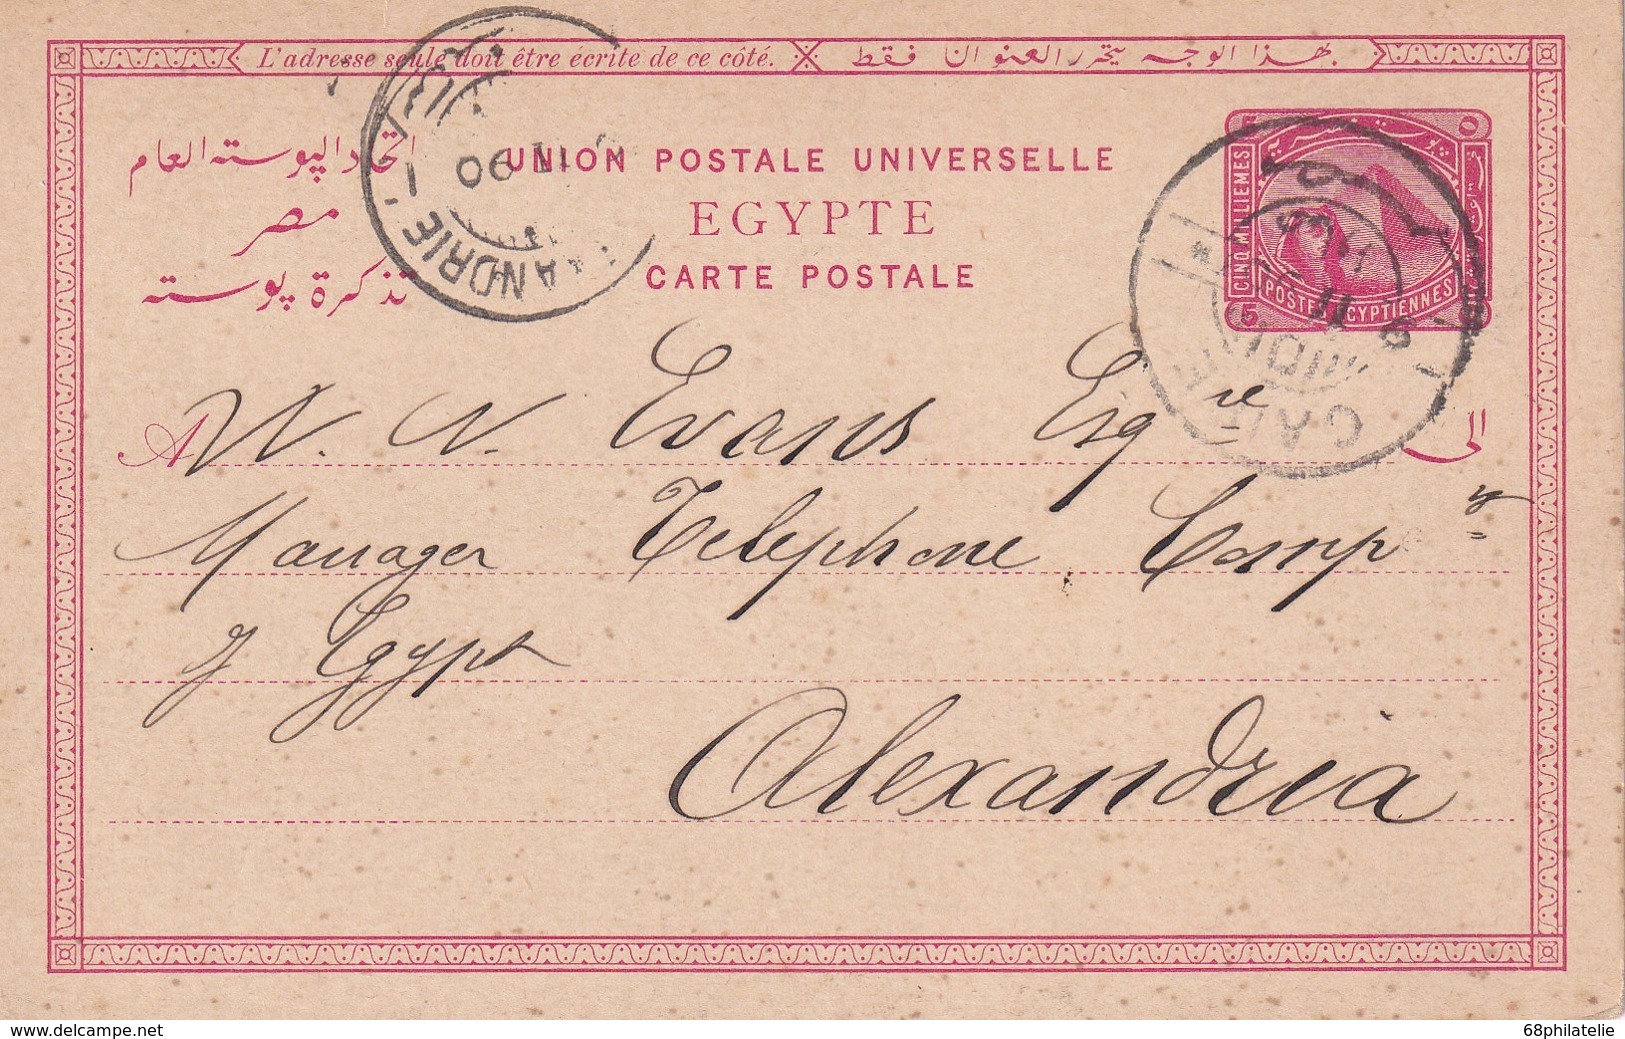 L'adresse seule doit être écrite de ce côté. بهذا الوجه يتحرر العنوان فقط
اتحاد البوسته العام UNION POSTALE UNIVERSELLE
مصر EGYPTE
تذكرة پوسته CARTE POSTALE
CINQ MILLIEMES
POSTES EGYPTIENNES
5 ٥
ANDRIE
II 90
CAIRE
II
A W. N. Evans Esqre الى
Manager Telephone Compy
of Egypt
Alexandria
www.delcampe.net 68philatelie